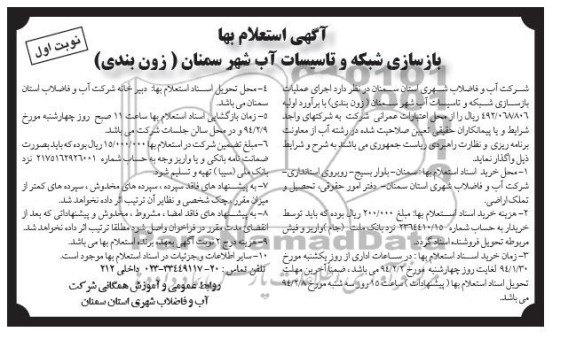 آگهی استعلام بها
نوبت اول
بازسازی شبکه و تاسیسات آب شهر سمنان ( زون بندی)
شرکت آب و فاضلاب شهری استان سمنان در نظر دارد اجرای عملیات
بازسازی شبکه و تاسیسات آب شهر سمنان ( زون بندی) با برآورد اولیه
۴۹۲/۰۶۸/۸۰۶ ریال را از محل اعتبارات عمرانی شرکت به شرکتهای واجد
شرایط و یا پیمانکاران حقیقی تعیین صلاحیت شده در رشته آب از معاونت
برنامه ریزی و نظارت راهبردی ریاست جمهوری می باشد به شرح و شرایط
ذیل واگذار نماید.
۱-محل خرید اسناد استعلام بها: سمنان- بلوار بسیج- روبروی استانداری-
شرکت آب و فاضلاب شهری استان سمنان- دفتر امور حقوقی، تحصیل و
تملک اراضی.
۲- هزینه خرید اسناد استعلام بها: مبلغ ۲۰۰/۰۰۰ ریال بوده که باید توسط
خریدار به حساب شماره ۲۳۶۴۴۱۰/۱۵ نزد بانک ملت (جام) واریز و فیش
مربوطه تحویل فروشنده اسناد گردد.
۳- زمان خرید اسناد استعلام بها : در ساعات اداری از روز یکشنبه مورخ
۹۴/۱/۳۰ لغایت روز چهارشنبه مورخ ۹۴/۲/۲ می باشد ، ضمنا آخرین مهلت
تحویل اسناد استعلام بها ( پیشنهادات ) ساعت ۱۵ روز سه شنبه مورخ ۹۴/۲/۸
می باشد.
۴-محل تحویل اسناد استعلام بها: دبیرخانه شرکت آب و فاضلاب استان
سمنان می باشد.
۵-زمان بازگشایی اسناد استعلام بها ساعت ۱۱ صبح روز چهارشنبه مورخ
۹۴/۲/۹ و در محل سالن جلسات شرکت می باشد.
۶-مبلغ تضمین شرکت در استعلام بها ۱۵/۰۰۰/۰۰۰ ریال بوده که باید بصورت
ضمانت نامه بانکی و یا واریز وجه به حساب شماره ۲۱۷۵۱۶۲۹۲۶۰۰۱ نزد
بانک ملی (سیبا) تهیه و تسلیم شود.
۷- به پیشنهاد های فاقد سپرده ، سپرده های مخدوش ، سپرده های کمتر از
میزان مقرر ، چک شخصی و نظایر آن ترتیب اثر داده نخواهد شد.
۸- به پیشنهاد های فاقد امضا ، مشروط ، مخدوش و پیشنهاداتی که بعد از
انقضای مدت مقرر در فراخوان واصل شود مطلقا ترتیب اثر داده نخواهد شد.
۹-هزینه درج ۲ نوبت آگهی بعهده برنده استعلام بها می باشد.
۱۰-سایر اطلاعات و جزئیات در اسناد استعلام بها موجود است.
تلفن تماس : ۲۰- ۳۳۴۴۹۱۱۷-۰۲۳ داخلی ۲۱۲
روابط عمومی و آموزش همگانی شرکت
آب و فاضلاب شهری استان سمنان